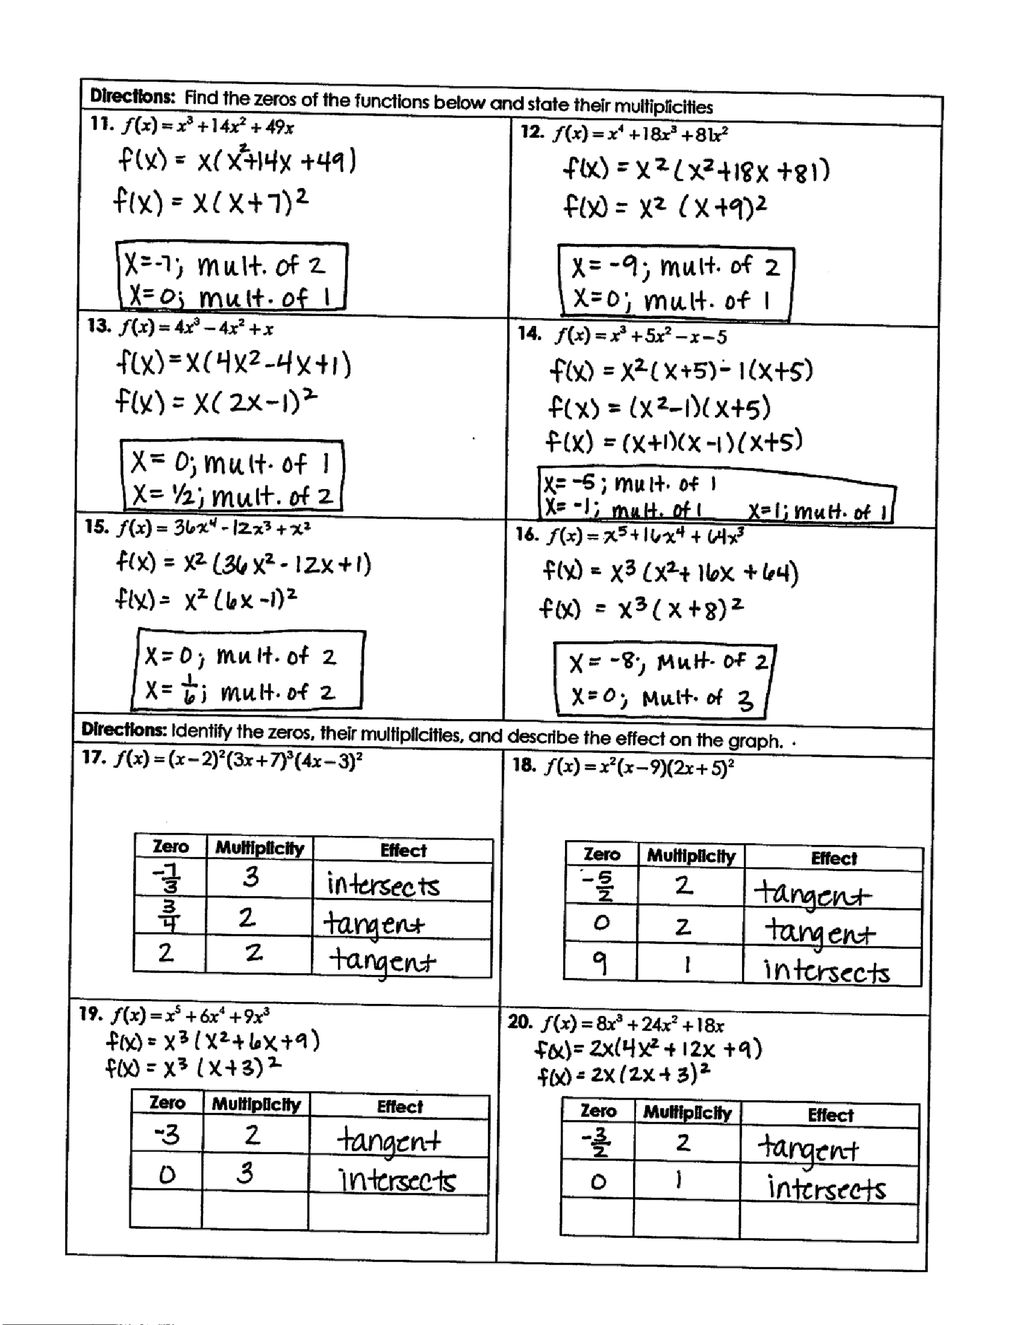 Directions: Find the zeros of the functions below and state their multiplicities
11. f(x) = x³ + 14x² + 49x
f(x) = x(x²+14x +49)
f(x) = x(x+7)²
x=-7; mult. of 2
x=0; mult. of 1
12. f(x) = x⁴ + 18x³ + 81x²
f(x) = x²(x²+18x +81)
f(x) = x² (x+9)²
x= -9; mult. of 2
x=0; mult. of 1
13. f(x) = 4x³ – 4x² + x
f(x)=x(4x²-4x+1)
f(x) = x(2x-1)²
x= 0; mult. of 1
x= ½; mult. of 2
14. f(x) = x³ + 5x² – x – 5
f(x) = x²(x+5)-1(x+5)
f(x) = (x²-1)(x+5)
f(x) = (x+1)(x-1)(x+5)
x= -5; mult. of 1
x= -1; mult. of 1 x=1; mult. of 1
15. f(x) = 36x⁴ - 12x³ + x²
f(x) = x² (36x² - 12x+1)
f(x) = x² (6x-1)²
x=0; mult. of 2
x= 1/6; mult. of 2
16. f(x) = x⁵ + 16x⁴ + 64x³
f(x) = x³ (x²+ 16x +64)
f(x) = x³ (x+8)²
x= -8; Mult. of 2
x=0; Mult. of 3
Directions: Identify the zeros, their multiplicities, and describe the effect on the graph.
17. f(x) = (x – 2)²(3x + 7)³(4x – 3)²
Zero Multiplicity Effect
-7/3 3 intersects
3/4 2 tangent
2 2 tangent
18. f(x) = x²(x – 9)(2x + 5)²
Zero Multiplicity Effect
-5/2 2 tangent
0 2 tangent
9 1 intersects
19. f(x) = x⁵ + 6x⁴ + 9x³
f(x) = x³(x²+6x+9)
f(x) = x³ (x+3)²
Zero Multiplicity Effect
-3 2 tangent
0 3 intersects
20. f(x) = 8x³ + 24x² + 18x
f(x)= 2x(4x² + 12x +9)
f(x) = 2x(2x+3)²
Zero Multiplicity Effect
-3/2 2 tangent
0 1 intersects